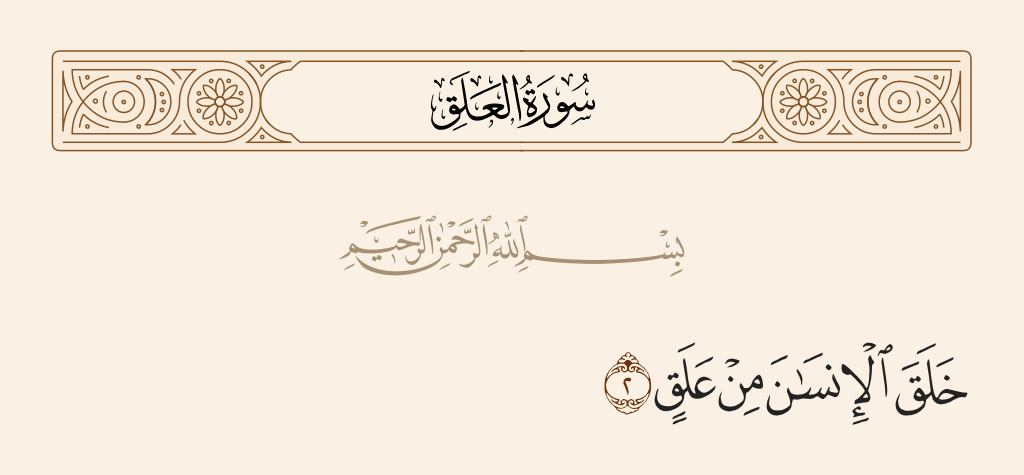 سُورَةُ العَلَقِ
بِسْمِ ٱللَّهِ ٱلرَّحْمَٰنِ ٱلرَّحِيمِ
خَلَقَ ٱلْإِنسَٰنَ مِنْ عَلَقٍ ٢